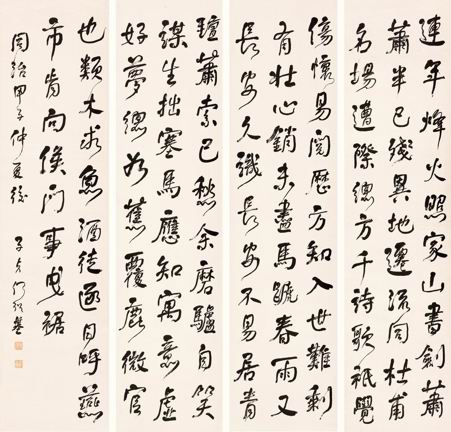 連年烽火照家山書劍蕭
蕭半已殘異地遷流同杜甫
名場遭際總方干詩歌祇覺
傷懷易閱歷方知入世難剩
有壯心銷未盡馬蹄春雨又
長安久識長安不易居青
氊蕭索已愁余磨驢自笑
謀生拙塞馬應知寓意虛
好夢總如蕉覆鹿微官
也類木求魚酒徒逐日呼燕
市肯向侯門事曳裾
同治甲子仲夏
子貞何紹基